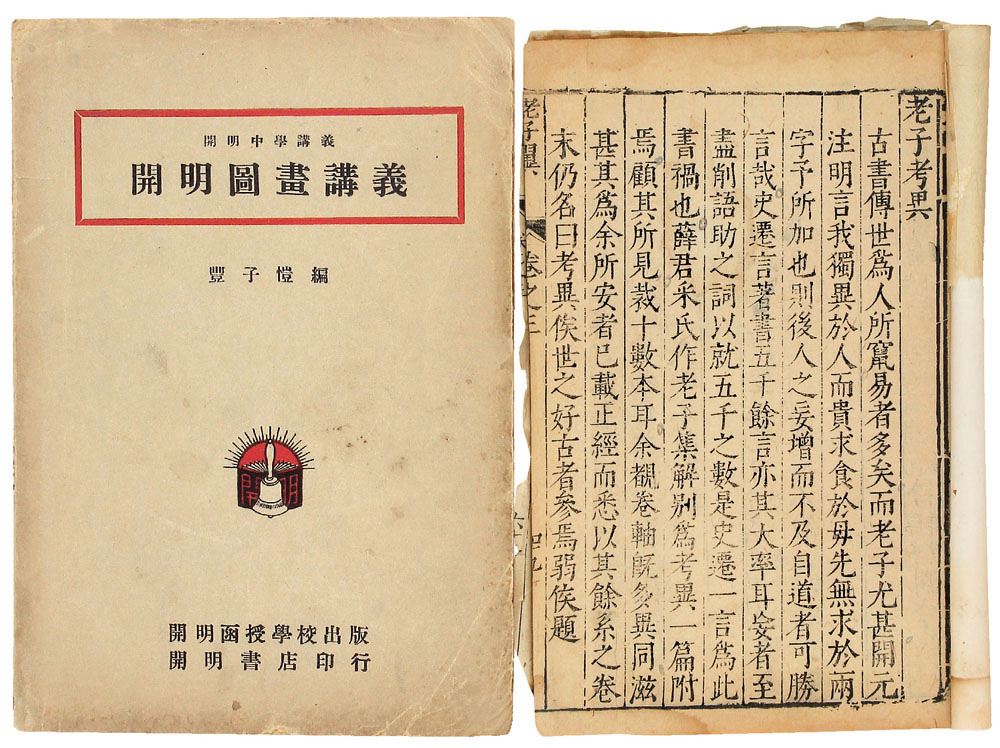 開明中學講義
開明圖畫講義
豐子愷編
開明
開明函授學校出版
開明書店印行
老子考異
古書傳世爲人所竄易者多矣而老子尤甚開元
注明言我獨異於人而貴求食於毋先無求於兩
字予所加也則後人之妄增而不及自道者可勝
言哉史遷言著書五千餘言亦其大率耳妄者至
盡削語助之詞以就五千之數是史遷一言爲此
書禍也薛君采氏作老子集解别爲考異一篇附
焉顧其所見裁十數本耳余覩卷軸旣多異同滋
甚其爲余所安者已載正經而悉以其餘系之卷
末仍名曰考異俟世之好古者參焉弱侯題
老子翼 卷之三